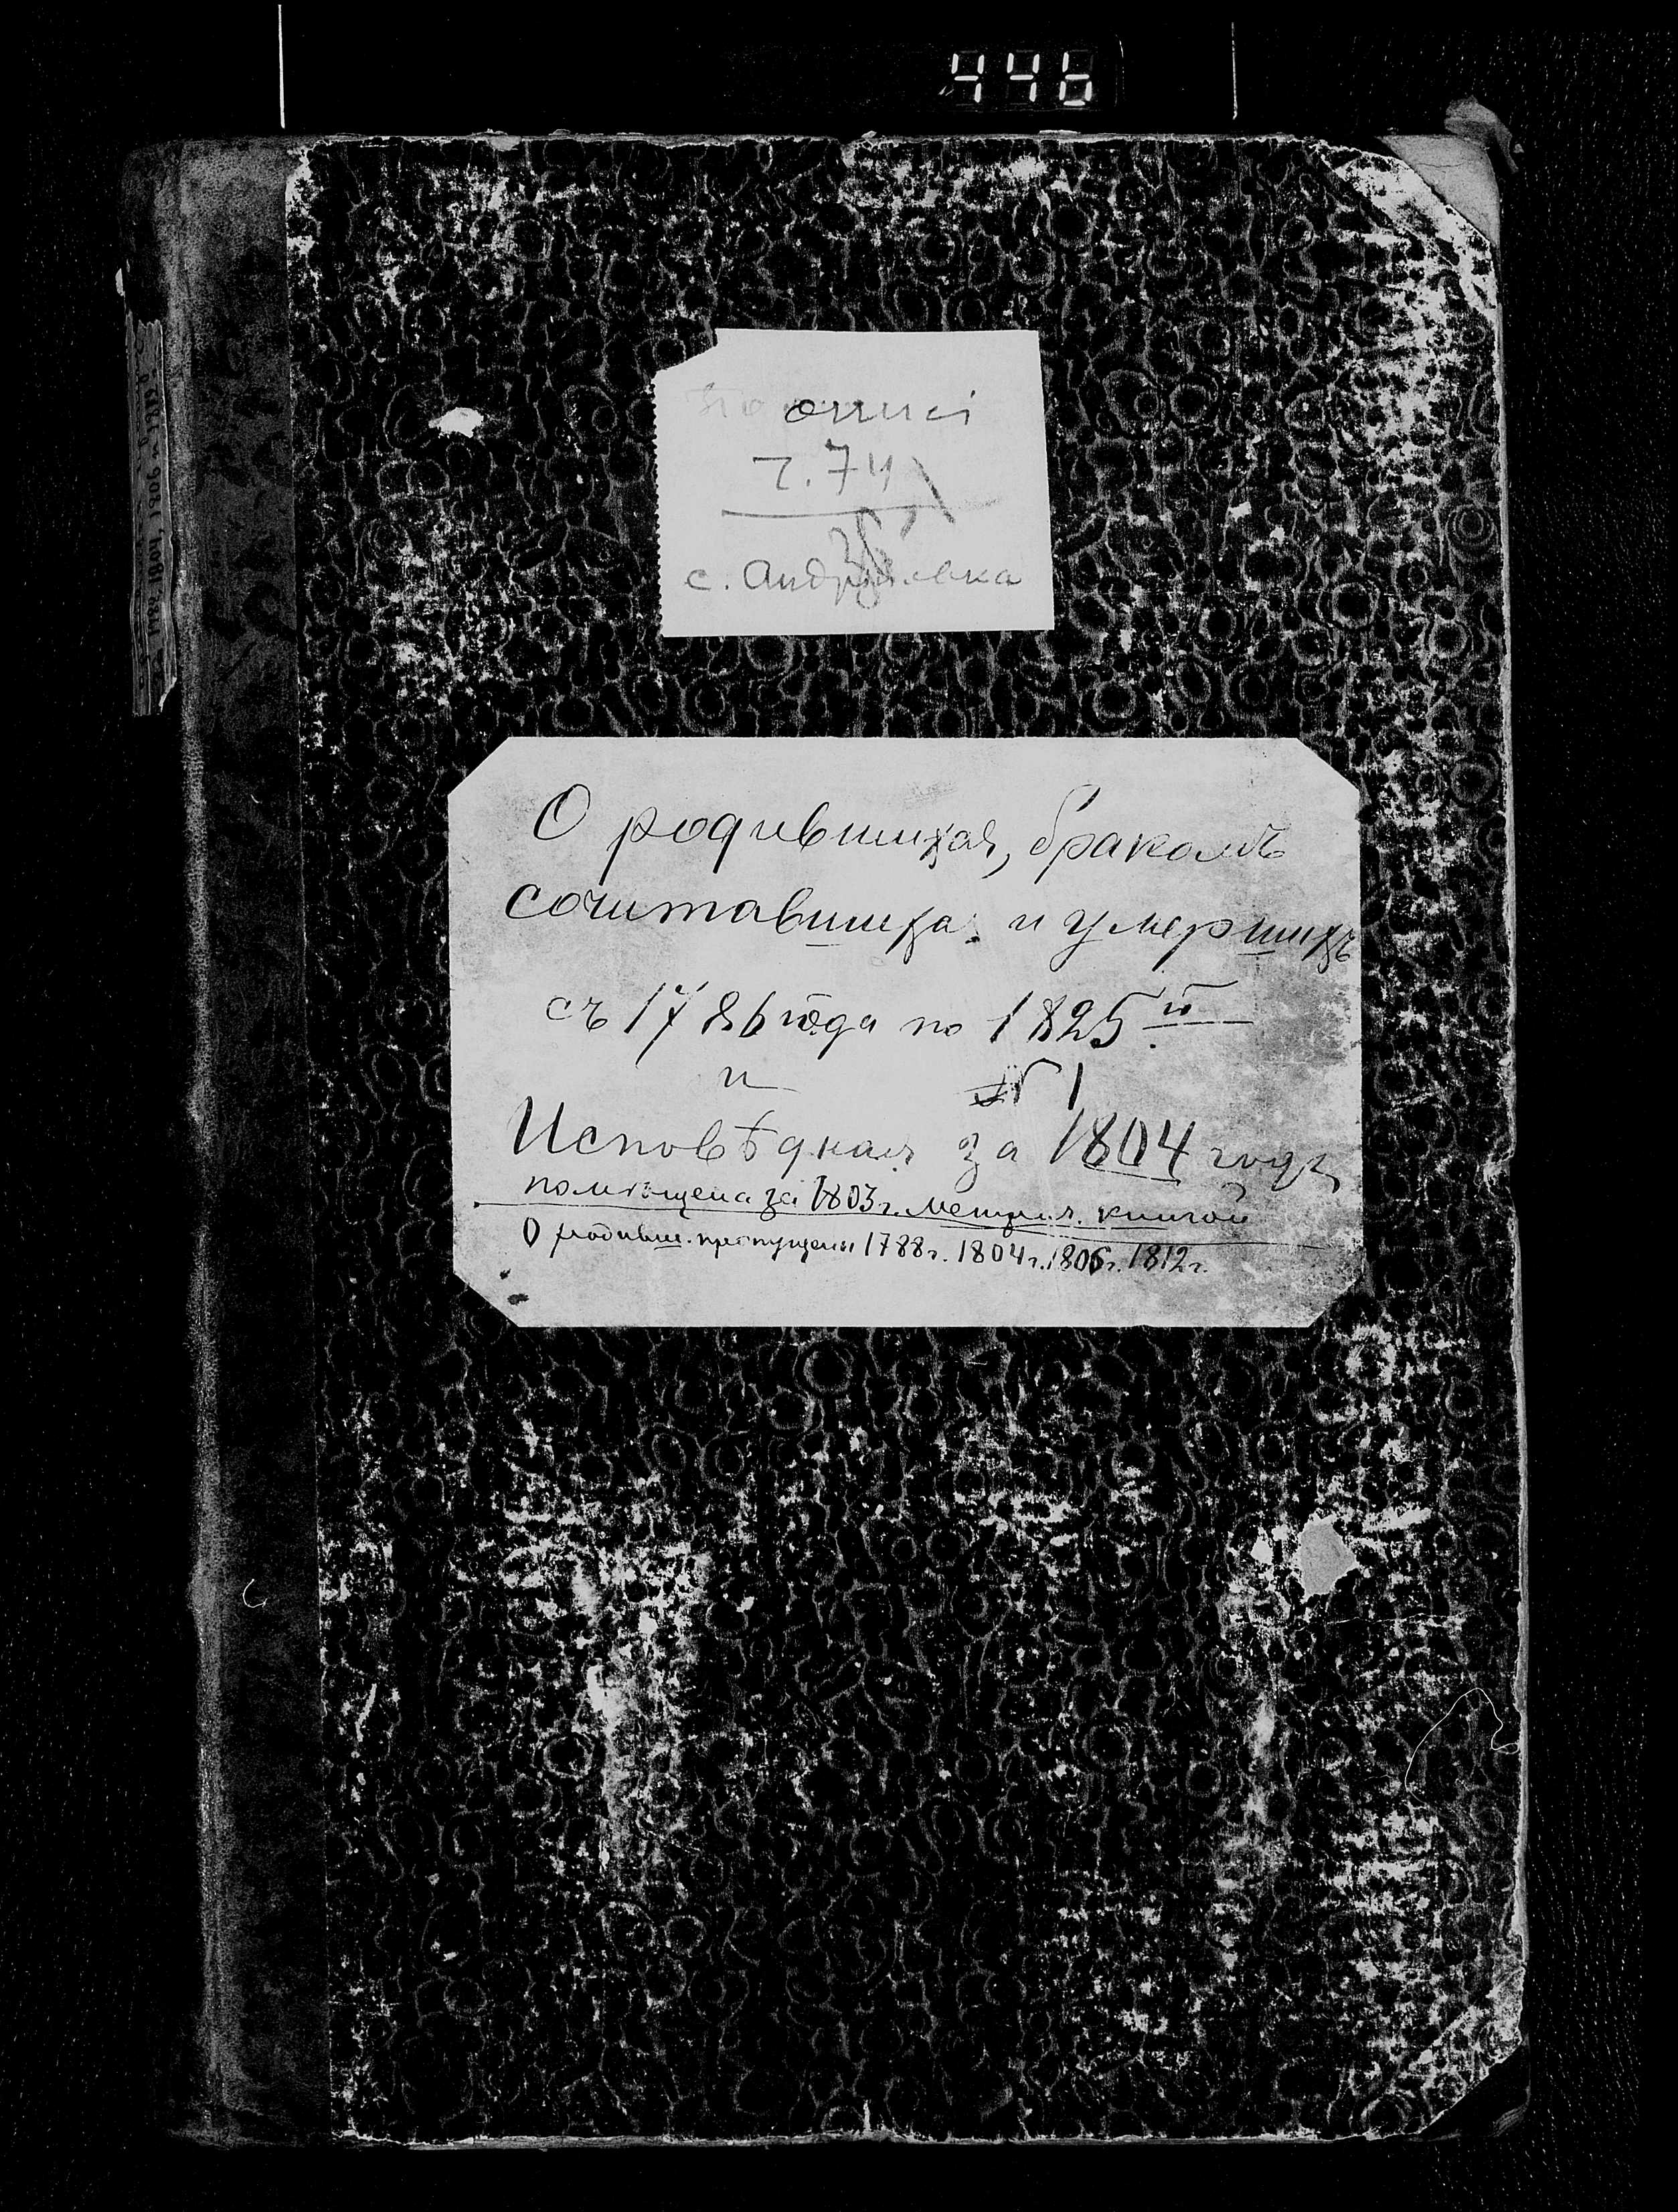 446
описі
г. 74
с. Андреевка
О родившихся, бракомъ
сочитавшихся и умершихъ
съ 1786 года по 1825 й
и № 1
Исповѣдная за 1804 годъ
помѣщена за 1803 г. метрич. книгой
О родивш. пропущены 1788 г. 1804 г. 1806 г. 1812 г.